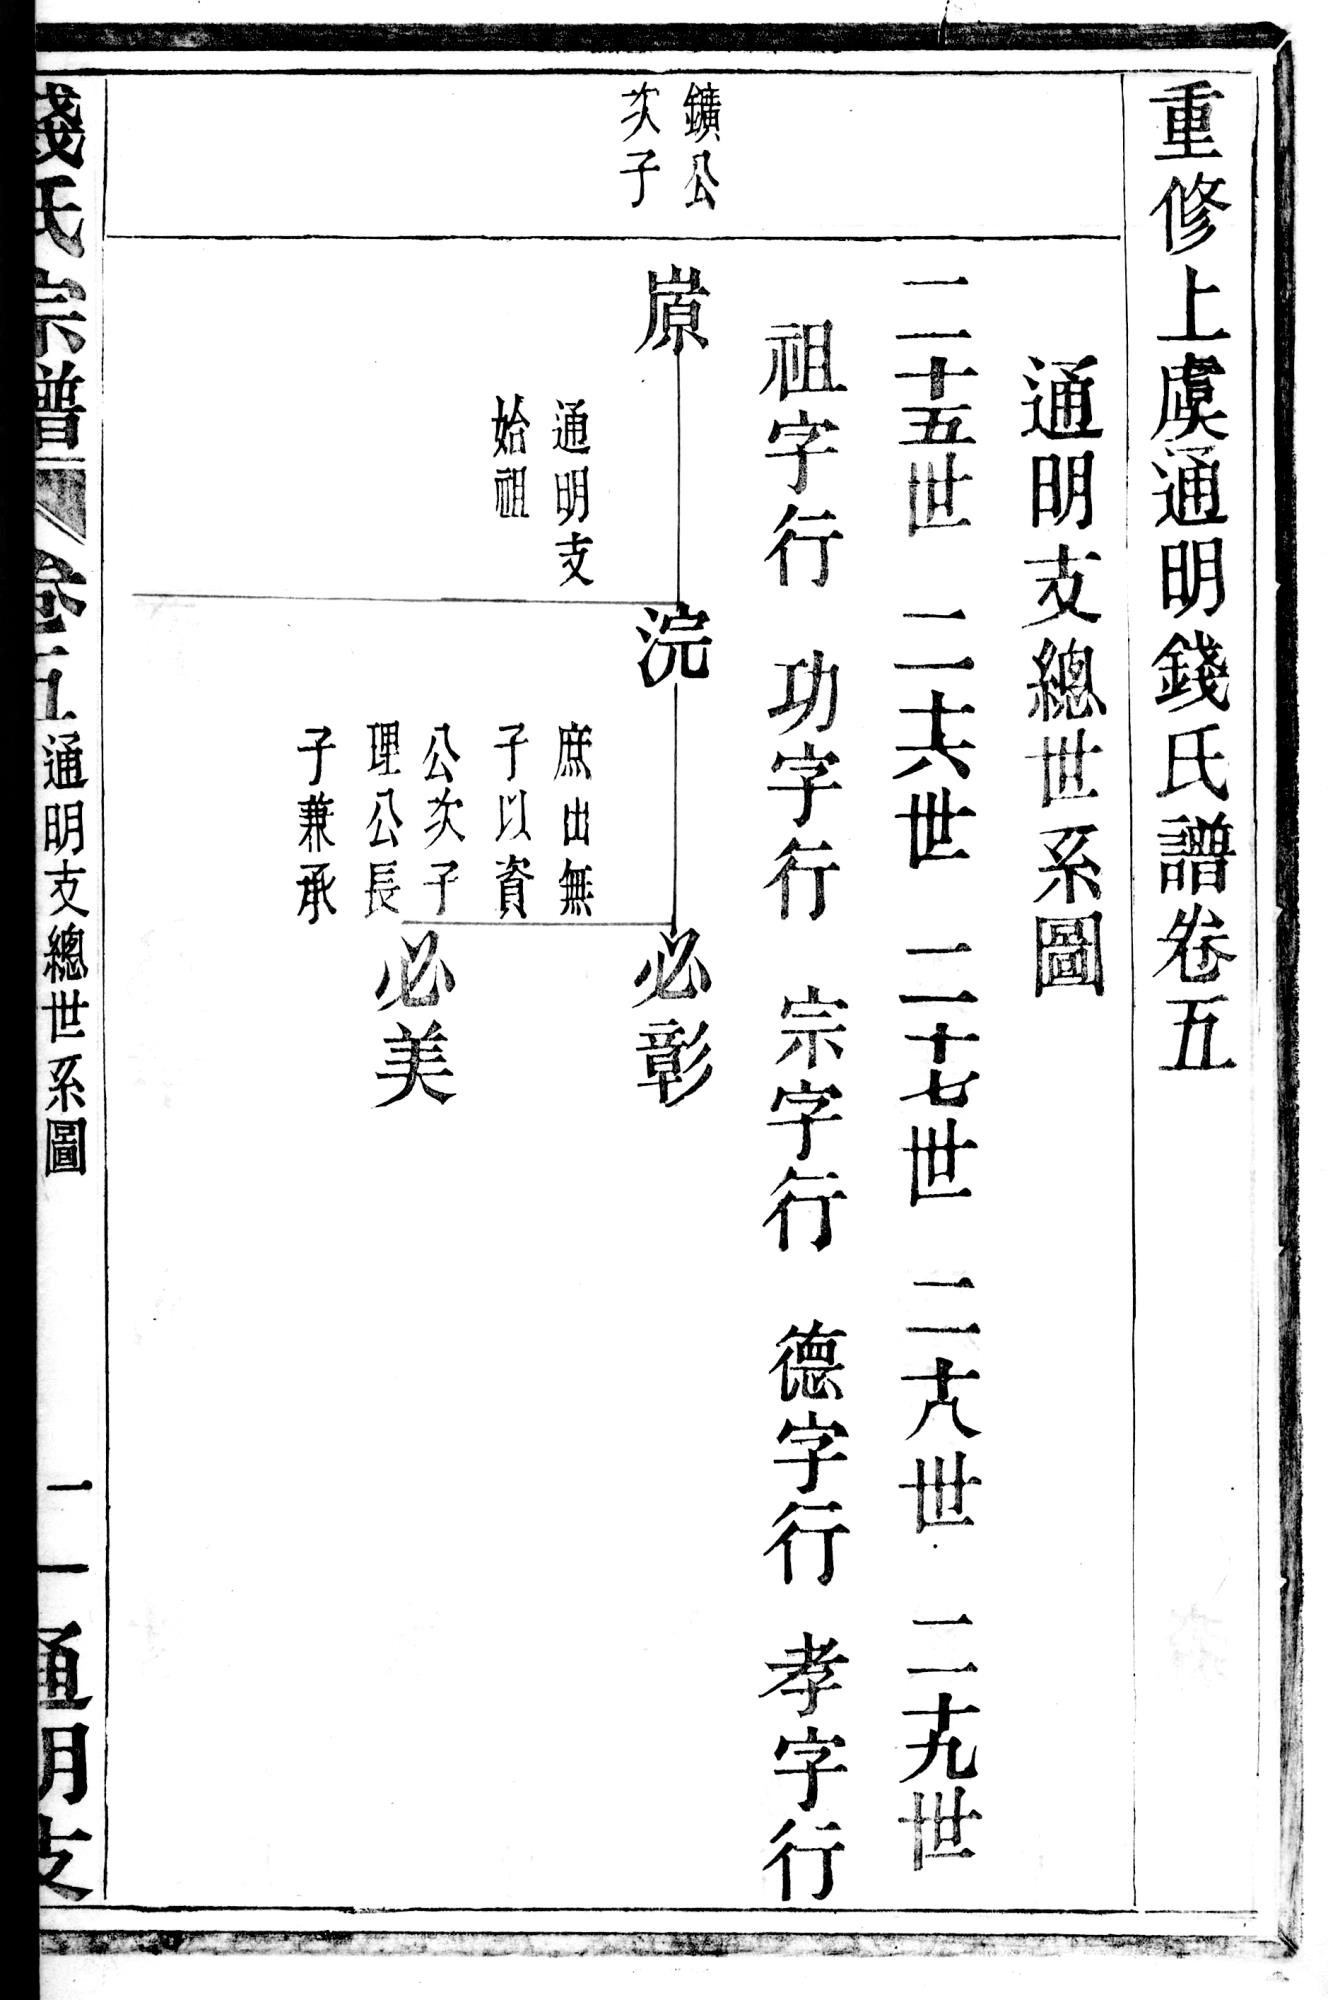 重修上虞通明錢氏譜卷五
通明支總世系圖
二十五世 二十六世 二十七世 二十八世 二十九世
祖字行 功字行 宗字行 德字行 孝字行
鑛公
次子
原
通明支
始祖
浣
庶出無
子以資
公次子
理公長
子兼承
必彰
必美
錢氏宗譜 卷五 通明支總世系圖 一 通明支